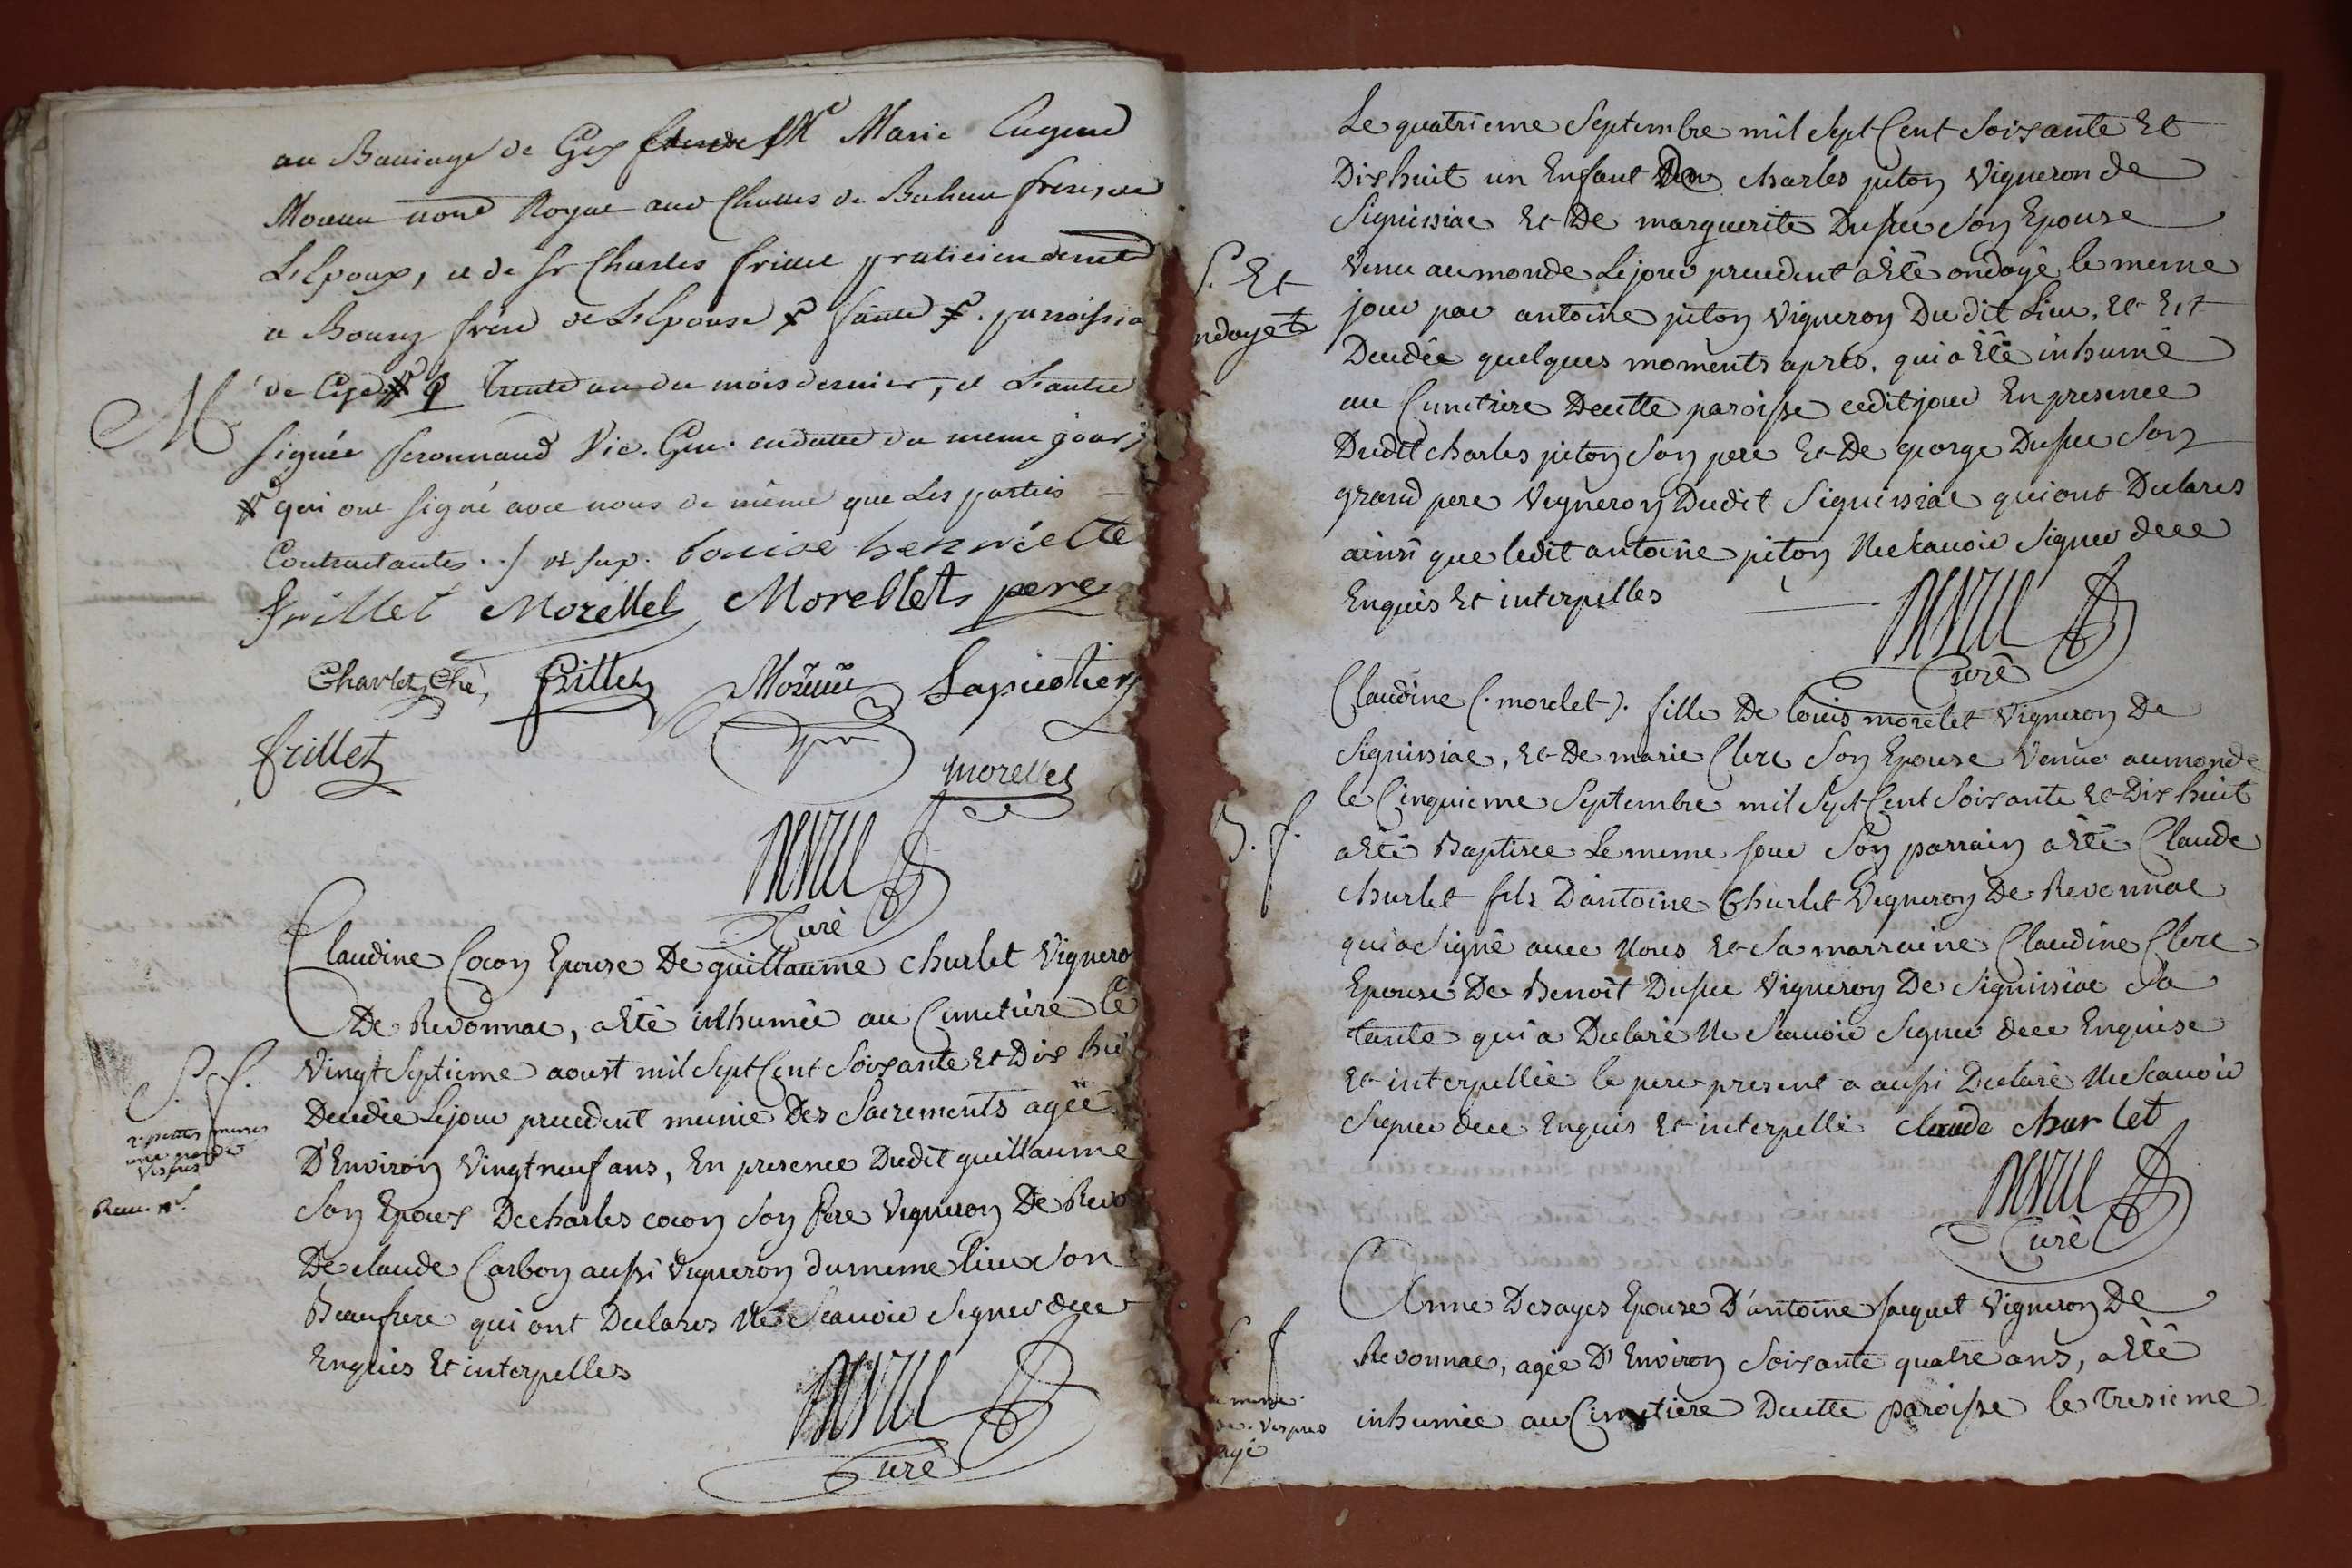 au Bailliage de Gex Mc Marie Eugene
Moreau Royal aux de frere de
L'Epoux, et de Sr Charles frillet praticien demt
a Bourg frere de L'Epouse paroissia
M
de Trente un du mois dernier, et L'autre
signée Vic. Gen. en datte du meme jour;
qui ont signé avec nous de même que Les parties
Contractantes ./. louise henriette
frillet Morellet Morellet pere
Charlet frillet Moreau
frillet
morellet
Curè
Claudine Cocon Epouse De guillaume churlet Vignero
De Revonnac, a Etè inhumèe au Cimetière le
Vingt Septieme aoust mil Sept Cent Soixante Et Dix hui
S. f.
Decedèe Le jour precedent munie Des Sacrements agèe
D'Environ Vingt neuf ans, En presence Dudit guillaume
Son Epoux De charles cocon Son Pere Vigneron De Revo
De claude Carbon aussi Vigneron du meme lieu Son
Beaufrere qui ont Declarès Ne Scavoir Signer dece
Enquis Et interpelles
Curè
Le quatrieme Septembre mil Sept Cent Soixante Et
Dix huit un Enfant De charles piton Vigneron de
Signissiac Et De marguerite Dufuc Son Epouse
S. Et
ndoyet
Venu au monde Le jour precedent a Etè ondoyè le meme
jour par antoine piton Vigneron Du dit Lieu, Et Est
Decedèe quelques moments aprês, qui a Etè inhumè
au Cimetiere De cette paroisse cedit jour En presence
Dudit charles piton Son pere Et De george Dufuc Son
grand pere Vigneron Dudit Signissiac qui ont Declares
ainsi que ledit antoine piton Ne Scavoir Signer dece
Enquis Et interpelles
Curè
Claudine (. morelet). fille De louis morelet Vigneron De
Signissiac, Et De marie Clerc Son Epouse Venue au monde
le Cinquieme Septembre mil Sept Cent Soixante Et Dix huit
B. f.
a Etè Baptisèe Le meme jour Son parrain a Etè Claude
churlet fils D'antoine Churlet Vigneron De Revonnac
qui a Signè avec Nous Et Sa marraine Claudine Clerc
Epouse De Benoit Dufuc Vigneron De Signissiac Sa
tante qui a Declarè Ne Scavoir Signer dece Enquise
Et interpellèe le pere present a aussi Declarè Ne Scavoir
Signer dece Enquis Et interpellè claude churlet
Curè
Anne Desayes Epouse D'antoine Jacquet Vigneron De
S. f
Revonnac, agèe D'Environ Soixante quatre ans, a Etè
inhumèe au Cimetiere De cette paroisse le tresieme